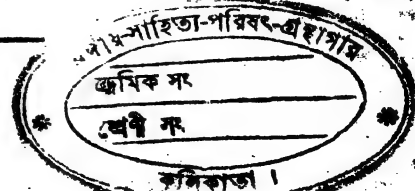 সাহিত্য-পরিষৎ-গ্রন্থাগার
ক্রমিক সং
শ্রেণী সং
কলিকাতা।